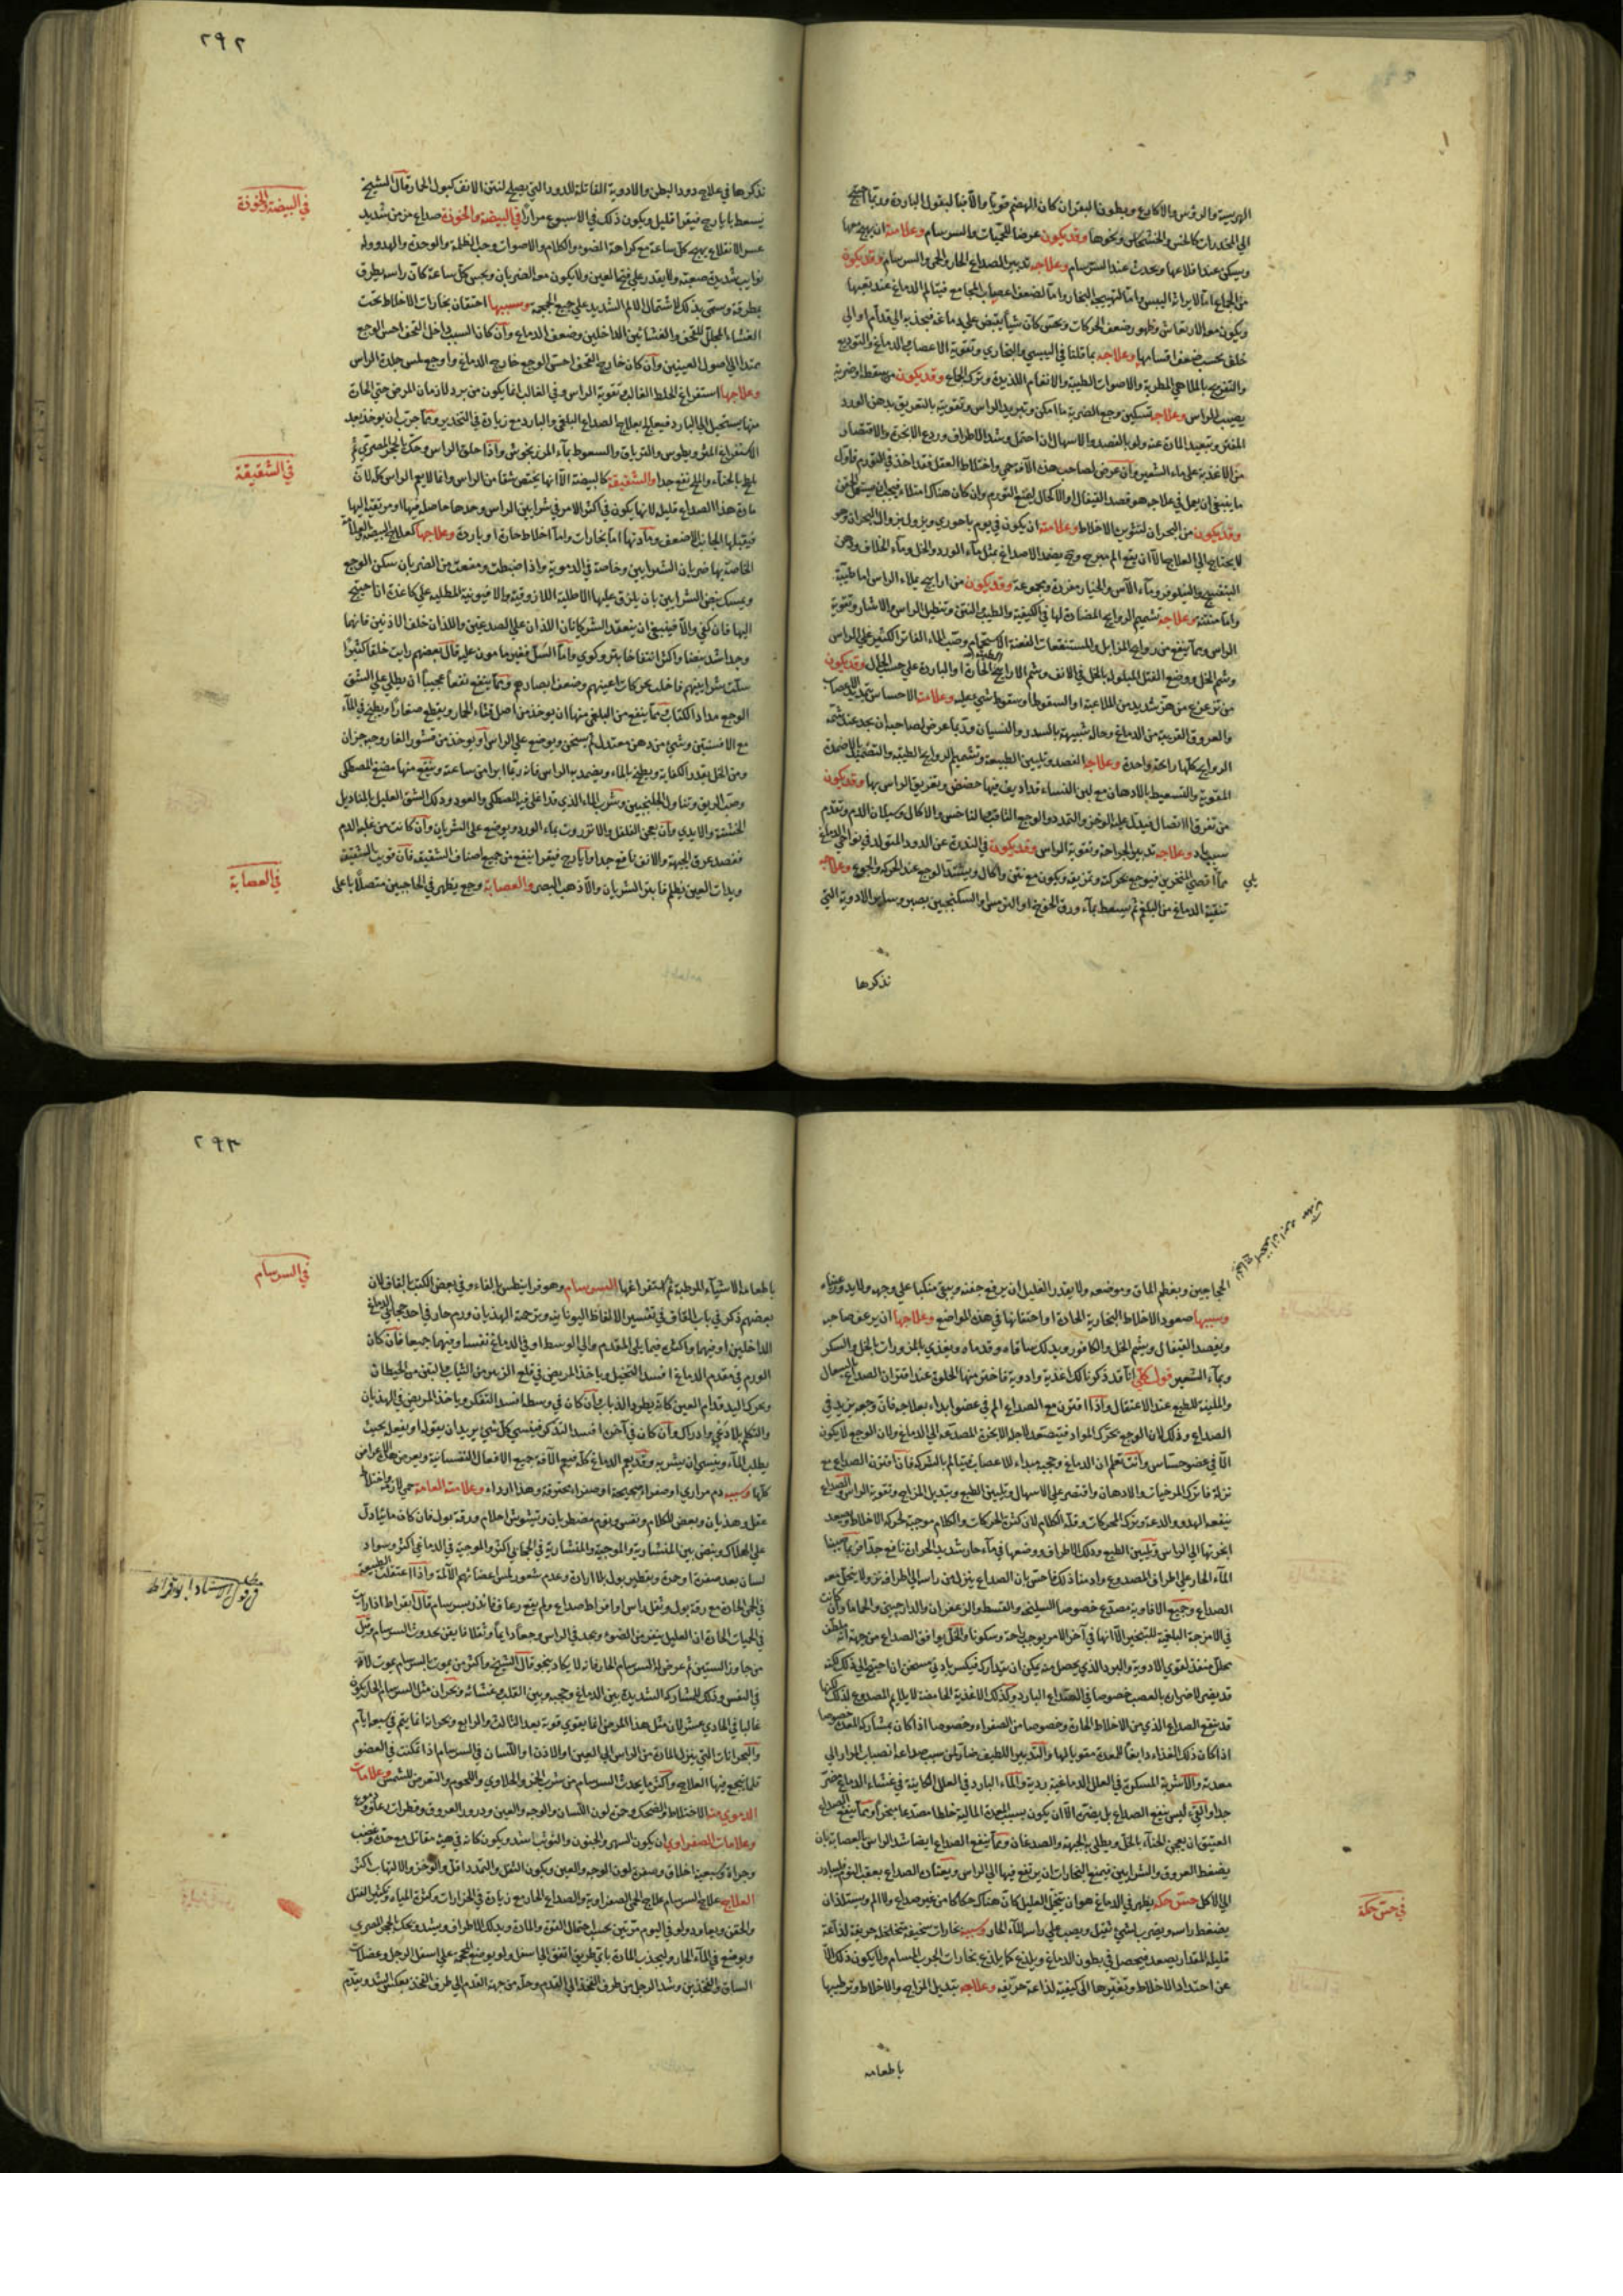 الهريسة والرؤس والاكارع وبطون البقر ان كان الهضم قويا والا فبالبقول الباردة وربما احتيج
الى المخدرات كالخس والخشخاش ونحوها وقد يكون عرضا للحميات والسرسام وعلامته ان يهيج معها
ويسكن عند اقلاعها ويحدث عند السرسام وعلاجه تدبير الصداع الحار والحمى والسرسام وقد يكون
من الجماع اما لايراثه اليبس واما لتهييجه البخار واما لضعف اعصاب المجامع فيتالم الدماغ عند تعبها
ويكون معه الارتعاش وظهور ضعف الحركات ويحس كان شيأ يقبض على دماغه فيجذبه الى قدام او الى
خلف بحسب ضعف اقسامها وعلاجه بما قلنا في اليبسي والبخاري وتقوية الاعصاب والدماغ والتوديع
والتفريح بالملاهي المطربة والاصوات الطيبة والانغام اللذيذة وترك الجماع وقد يكون من سقطة او ضربة
يصيب الراس وعلاجه تسكين وجع الضربة ما امكن وتبريد الراس وتقويته بالتعريق بدهن الورد
المفتر وتبعيد المادة عنه ولو بالفصد والاسهال ان احتمل وشد الاطراف وردع الابخرة والاقتصار
من الاغذية على ماء الشعير وان عرض لصاحب هذه الآفة حمى واختلاط العقل فقد اخذ في التورم فاول
ما ينبغي ان يعمل في علاجه هو فصد القيفال او الاكحل ليمنع التورم وان كان هناك امتلاء فيجب ان يستعمل الحقن
وقد يكون من البحران لتثوير الاخلاط وعلامته ان يكون في يوم باحوري ويزول بزوال البحران وهو
لا يحتاج الى العلاج الا ان يقع الم مبرح وح يضمد الاصداغ بمثل ماء الورد والخل وماء الخلاف ودهن
البنفسج والنيلوفر وماء الآس والخيار مفردة ومجموعة وقد يكون من اراييح تملاء الراس اما طيبة
واما منتنة وعلاجه تشميم الروايح المضادة لها في الكيفية والطيب والنتن وتنطيل الراس والاستار وتقوية
الراس ومما ينفع من روايح المزابل والمستنقعات العفنة الاستحمام وصب الماء الفاتر الكثير على الراس
وشم الخل ووضع الفتل المبلولة بالخل في الانف وشم الاراييح الحارة او الباردة على حسب الحال وقد يكون
من تزعزع من هز شديد من الملاعبة او السقوط او سقوط شيء عليه وعلامته الاحساس بتمدد الاعصاب
والعروق القريبة من الدماغ وحال شبيهة بالسدر والنسيان وربما عرض لصاحبه ان يجد عند شمه
الروايح كلها رايحة واحدة وعلاجه الفصد وتليين الطبيعة وتشميم الروايح الطيبة والتضميد بالاضمدة
المقوية والتسعيط بالادهان مع لبن النساء قد اديف فيها حضض وتعريق الراس بها وقد يكون
من تفرق الاتصال فيدل عليه الوخز والتمدد والوجع الثاقب والناخس والاكال وسيلان الدم وتقدم
سبب باد وعلاجه تدبير الجراحة وتقوية الراس وقد يكون في الندرة عن الدود المتولد في نواحي الدماغ
يلي
مما اقصى المنخرين فيوجع بحركته وتمزيقه ويكون مع نتن واكال ويشتد الوجع عند الحركة والجوع وعلاجه
تنقية الدماغ من البلغم ثم يسعط بماء ورق الخوخ او الترمس او السكنجبين بصبر وساير الادوية التي
نذكرها
٢٩٢
نذكرها في علاج دود البطن والادوية القاتلة للدود التي يصلح لنتن الانف كبول الحمار قال الشيخ
يسعط بايارج فيقرا قليل ويكون ذلك في الاسبوع مرارا في البيضة والخوذة صداع مزمن شديد
في البيضة والخوذة
عسر الانقلاع يهيج كل ساعة مع كراهة الضوء والكلام والاصوات وحب الظلمة والوحدة والهدو وله
نوايب شديدة صعبة ولا يقدر على فتح العين ولا يكون معه الضربان ويحس كل ساعة كان راسه يطرق
بطرقة وسمي بذلك لاشتمال الالم الشديد على جميع الجمجمة وسببها احتقان بخارات الاخلاط تحت
الغشاء المجلل للقحف والغشائين الداخلين وضعف الدماغ وان كان السبب داخل القحف احس الوجع
ممتدا الى اصول العينين وان كان خارج القحف احس الوجع خارج الدماغ واوجع لمس جلدة الراس
وعلاجها استفراغ الخلط الغالب وتقوية الراس وفي الغالب انما يكون من برد لازمان المرض حتى الحارة
منها يستحيل الى البارد فيعالج بعلاج الصداع البلغمي والبارد مع زيادة في التخدير ومما جرب ان يوخذ بعد
الاستفراغ المثروديطوس والترياق والسعوط بماء المرزنجوش واذا حلق الراس وحك بالحجر المصري ثم
في الشقيقة
يلطخ بالحناء والملح نفع جدا والشقيقة كالبيضة الا انها يختص شقا من الراس واما لا يعم الراس كله لان
مادة هذا الصداع قليلة لانها يكون في اكثر الامر في شرايين الراس وحدها حاصلة فيها او مرتقية اليها
فيقبلها الجانب الاضعف ومادتها اما بخارات واما اخلاط حارة او باردة وعلاجها كعلاج البيضة والعلامة
الخاصة بها ضربان الشرايين وخاصة في الدموية واذا ضبطت ومنعت من الضربان سكن الوجع
ويمسك نبض الشرايين بان يلزق عليها الاطلية اللازوقية والافيونية المطلية على كاغد ان احتيج
اليها فان كفى والا فينبغي ان يتعقد الشريانان اللذان على الصدغين واللذان خلف الاذنين فايهما
وجد اشد نبضا واكثر انتفاخا بتر وكوي واما السل فغير مامون عليه قال بعضهم رايت خلقا كثيرا
سلت شرايينهم فاختلت حركات اعينهم وضعف ابصارهم ومما ينفع نفعا عجيبا ان يطلى على الشق
الوجع مداد الكتاب ومما ينفع من البلغمي منها ان يوخذ من اصل قثاء الحمار ويقطع صغارا ويطبخ في الماء
مع الافسنتين وشيء من دهن معتدل ثم يسخن ويوضع على الراس او يوخذ من قشور الغار وجيه جزان
ومن الخل بقدر الكفاية ويطبخ بالماء ويضمد به الراس فانه ربما ابرا من ساعته وينفع منها مضغ المصطكى
وصب الريق وتناول الجلنجبين وشرب الماء الذي قد اغلي فيه المصطكى والعود ودلك الشق العليل بالمناديل
الخشنة والايدي وان يعجن الفلفل والانزروت بماء الورد ويوضع على الشريان وان كانت من غلبة الدم
ففصد عرق الجبهة والانف نافع جدا وايارج فيقرا ينفع من جميع اصناف الشقيقة فان قويت الشقيقة
في العصابة
وبدات العين يظلم فا بتر الشريان والا ذهب البصر والعصابة وجع يظهر في الحاجبين متصلا باعلى
الحجاجين وبعظم الماق وموضعه ولا يقدر العليل ان يرفع جفنه ويبقى منكبا على وجهه ولا يدور عيناه
وسببها صعود الاخلاط البخارية الحادة او احتقانها في هذه المواضع وعلاجها ان يرعف صاحبه
ويفصد القيفال ويشم الخل والكافور ويدلك ساقاه وقدماه ويغذى بالمزورات بالخل والسكر
وبماء الشعير قول كلي انا قد ذكرنا لك اغذية وادوية فاختر منها الحلوة عند اقتران الصداع بالسعال
والملينة للطبع عند الاعتقال واذا اقترن مع الصداع الم في عضو ابداء بعلاجه فان وجعه يزيد في
الصداع وذلك لان الوجع يحرك المواد فيتصعد لاجله الابخرة المصدعة الى الدماغ ولان الوجع لا يكون
الا في عضو حساس وانت تعلم ان الدماغ وحجبه مبداء للاعصاب فيتالم بالشركة فان اقترن الصداع مع
نزلة فاترك المرخيات والادهان واقتصر على الاسهال وتليين الطبع وتبديل المزاج وتقوية الراس والصداع
ينفعه الهدو والدعة وترك الحركات وقلة الكلام لان كثرة الحركات والكلام موجبة لحركة الاخلاط وتصعد
ابخرتها الى الراس وتليين الطبع ودلك الاطراف ووضعها في ماء حار شديد الحرارة نافع جدا
الماء الحار على اطراف المصدوع وادمنا ذلك فاحس بان الصداع ينزل من راسه الى اطرافه نزولا ينحل معه
الصداع وجميع الافاوية مصدع خصوصا السليخة والقسط والزعفران والدارصيني والحماما وان كانت
في الامزجة البلغمية للتبخير الا انها في آخر الامر يوجب راحة وسكونا والخل يوافق الصداع من جهة انه ملطف
محلل منفذ لقوى الادوية والبرد الذي يحصل منه يمكن ان يتدارك فيكسر بادنى مسخن ان احتيج الى ذلك لكنه
قد يضر لاضراره بالعصب خصوصا في الصداع البارد وكذلك الاغذية الحامضة لا يلايم المصدوع لذلك لكنها
قد ينفع الصداع الذي من الاخلاط الحارة وخصوصا من الصفراء وخصوصا اذا كان بمشاركة المعدة خصوصا
اذا كان ذلك الغذاء دابغا للمعدة مقويا لها والتدبير اللطيف ضار لمن سبب صداعه انصباب المرار الى
معدته والاشربة المسكرة في العلل الدماغية ردية والماء البارد في العلل الكاينة في غشاء الدماغ مضر
جدا والقيء ليس ينفع الصداع بل يضره الا ان يكون بسبب المعدة المالية خلطا مصدعا مبخرا ومما ينفع الصداع
العتيق ان يعجن الحناء بالخل ويطلى به الجبهة والصدغان ومما ينفع الصداع ايضا شد الراس بالعصابة بان
يضغط العروق والشرايين فيمنع البخارات ان يرتفع فيها الى الراس ويعتان الصداع بعقب النوم فليبادر
في حس حكة
الى الاكل حس حكة يظهر في الدماغ هو ان يتخيل العليل كان هناك حكاكا من غير صداع ولا الم ويستلذ ان
يضغط راسه ويضرب بشيء ثقيل ويصب على راسه الماء الحار وسببه بخارات سخيفة يتخلخل حريفة لذاعة
قليلة المقدار يصعد فيحصل في بطون الدماغ ويلذع كما يلذع بخارات الجرب المسام ولا يكون ذلك الا
عن احتداد الاخلاط وتغيرها الى كيفية لذاعة حريفة وعلاجه تبديل المزاج والاخلاط وترطيبها
باطعامه
٢٩٣
في السرسام
باطعامه الاشياء المرطبة ثم استفراغها السرسام وهو قرانيطس بالفاء وفي بعض الكتب بالقاف لان
بعضهم ذكر في باب القاف في تفسير الالفاظ اليونانية وترجمة الهذيان ورم حار في احد حجابي الدماغ
الداخلين او فيهما واكثره فيما يلي المقدم والى الوسط او في الدماغ نفسه او فيهما جميعا فان كان
الورم في مقدم الدماغ افسد التخيل وياخذ المريض في قلع الزيبر من الثياب والتبن من الحيطان
ويحرك اليد قدام العين كانه يطرد الذباب وان كان في وسطه افسد التفكر وياخذ المريض في الهذيان
والتكلم بلا وعي وادراك وان كان في آخره افسد التذكر فينسى كل شيء يريد ان يقوله او يفعل بحيث
يطلب الماء وينسى ان يشربه وقد يعم الدماغ كله فيعم الآفة جميع الافعال النفسانية ويعرض هذه الاعراض
كلها وسببه دم مراري او صفراء صحيحة او صفراء محترقة وهذا ارداء وعلامته العامة حمى لازمة واختلاط
عقل وهذيان وبغض للكلام ونفس ونوم مضطربان وتشوش احلام ورقة بول فان كان مائيا دل
على الهلاك ونبض بين المنشارية والموجية والمنشارية في الحجابي اكثر والموجية في الدماغي اكثر وسواد
لسان بعد صفرة او حمرة وتقطير بول بلا ارادة وعدم شعور بلمس اعضائهم الآلمة واذا اعتقلت الطبيعة
في الحمى الحادة مع رقة بول وثقل راس او افراط صداع ولم يقع رعاف فانذر بسرسام قال بقراط اذا رايت
في الحميات الحادة ان العليل ينفر من الضوء ويجد في الراس وجعا دايما وثقلا فايقن بحدوث السرسام وقيل
من جاوز الستين ثم عرض له السرسام الحار فانه لا يكاد ينجو قال الشيخ واكثر من يموت بالسرسام يموت لآفة
في النفس وذلك للمشاركة الشديدة بين الدماغ وحجبه وبين القلب وغشائه وبحران مثل السرسام الحار يكون
غالبا في الحادي عشر لان مثل هذا المرض انما يقوى قوته بعد الثالث والرابع وبحرانه انما يتم في سبعة ايام
والبحرانات التي ينزل المادة من الراس الى العين او الاذن او اللسان في السرسام اذا تمكنت في العضو
قلما ينجع فيها العلاج واكثر ما يحدث السرسام من شرب الخمر والحلاوى واللحوم والتعرض للشمس وعلامات
الدموي منه الاختلاط والضحك وحمرة لون اللسان والوجه والعين ودرور العروق وقطرات رعاف ودموع
وعلامات الصفراوي ان يكون السهر والجنون والتوثب اشد ويكون كانه في هيئة مقاتل مع حدة وغضب
وجراة وسبعية اخلاق وصفرة لون الوجه والعين ويكون الثقل والتمدد اقل والوخز والالتهاب اكثر
العلاج علاج السرسام علاج الحمى الصفراوية والصداع الحار مع زيادة في الحرارات وكثرة المياه وتكثير الفتل
والحقن ويعاود ولو في اليوم مرتين بحسب احتمال القوة والمادة ويدلك الاطراف ويشد ويحك بالحجر المصري
ويوضع في الماء الحار وليجذب المادة باي طريق اتفق الى اسفل ولو بوضع المحجمة على اسفل الرجل وعضلات
الساق والفخذين وشد الرجل من طرف الفخذ الى القدم وحله من جهة القدم الى طرف الفخذ بعكس الشد ويتمم